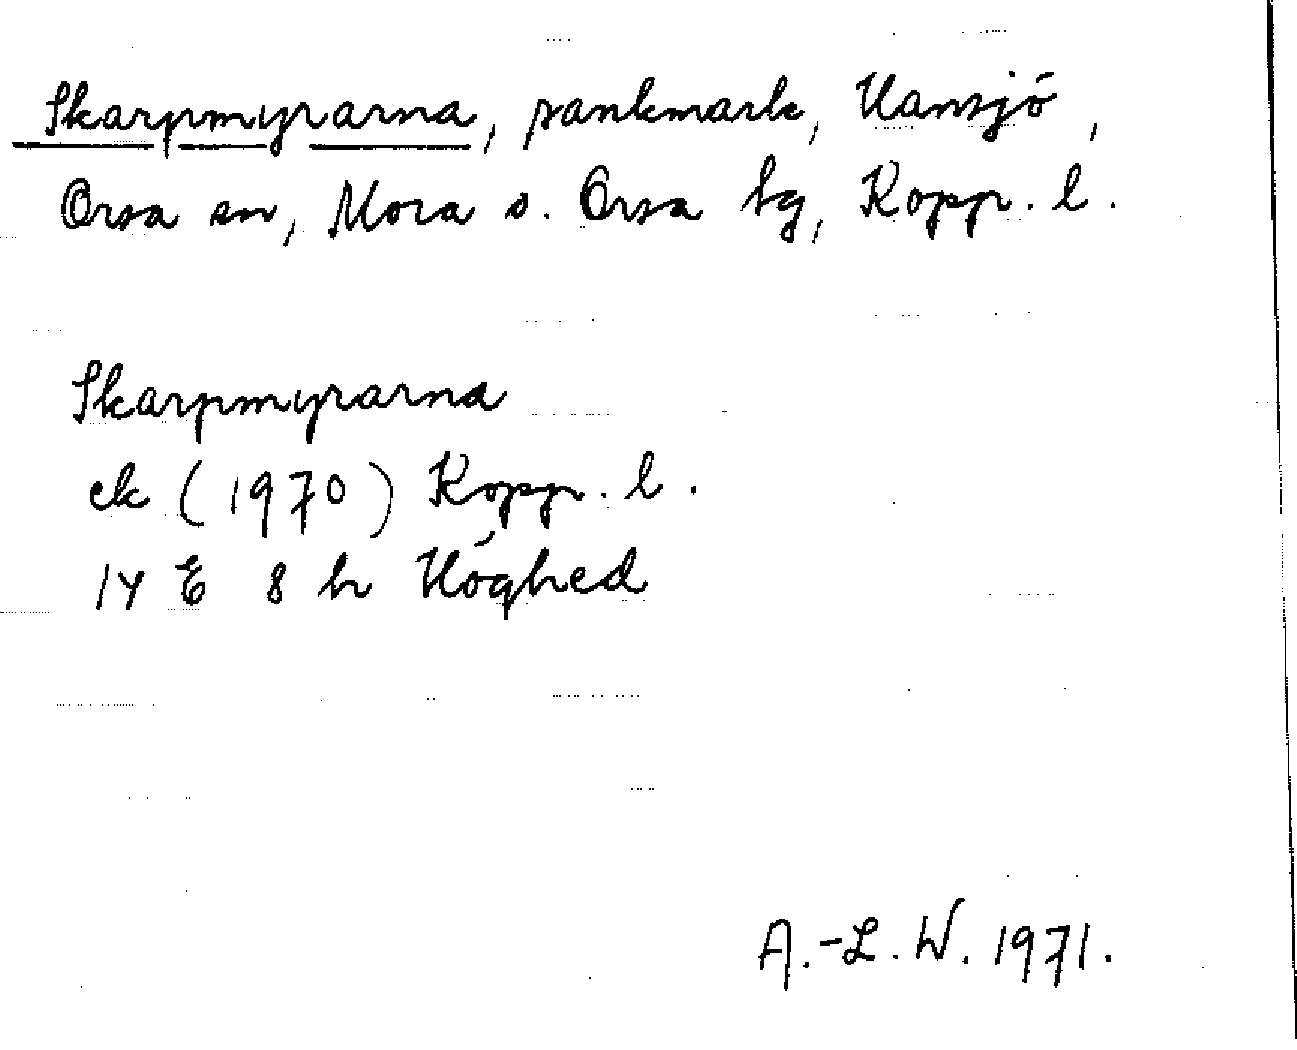 Skarpmyrarna, sankmark, Hansjö,
Orsa sn, Mora o. Orsa tg, Kopp. l.
Skarpmyrarna
ek (1970) Kopp. l.
14 E 8 h Höghed
A.-L. W. 1971.